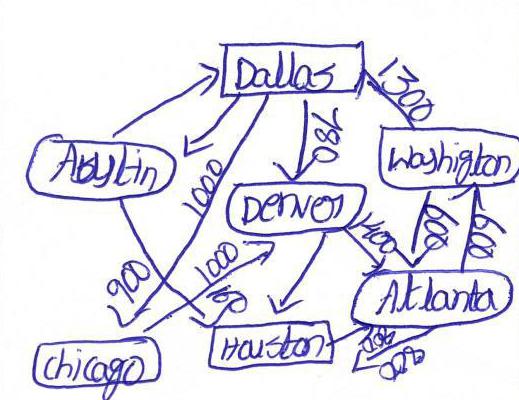 Dallas
1300
780
Austin
Washigton
1000
Denver
1400
600
600
900
1000
160
Atlanta
Chicago
Houston